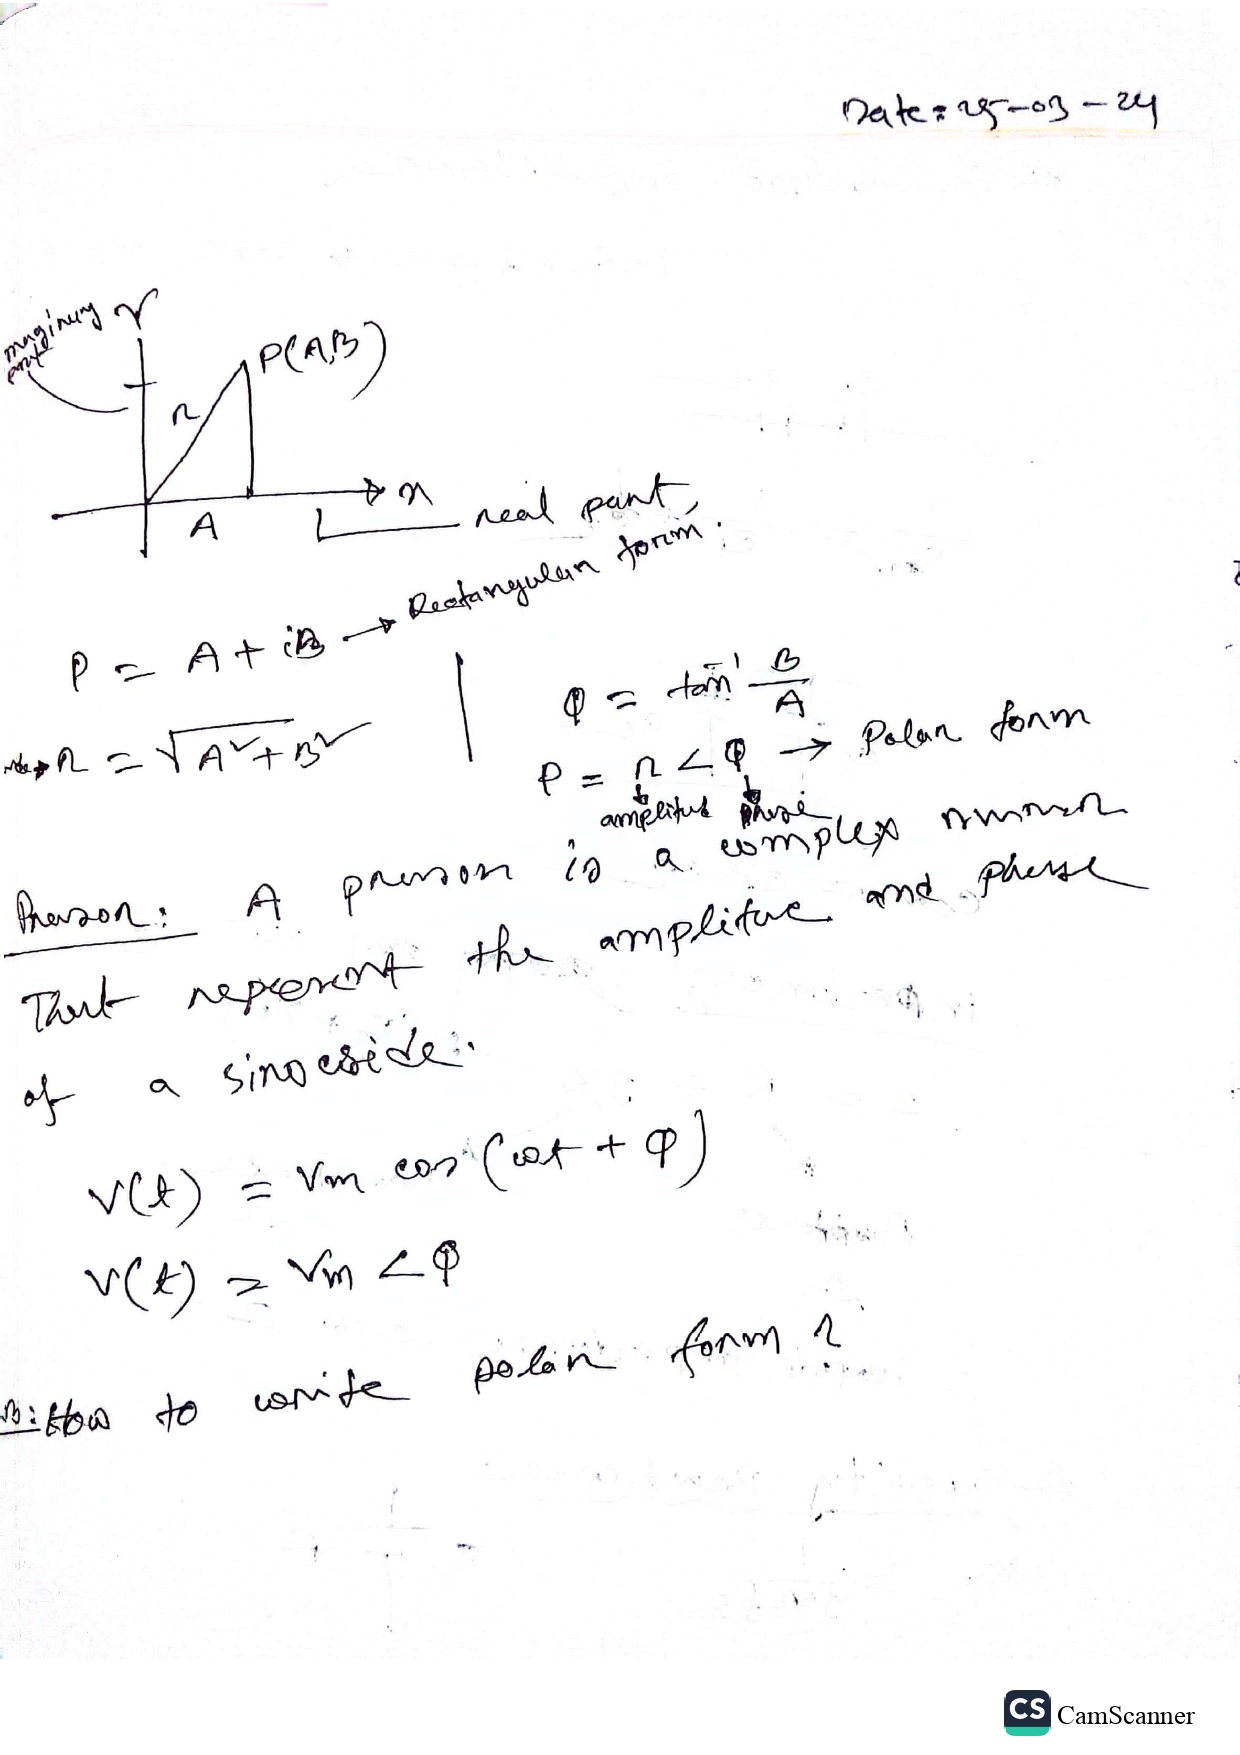 Date: 25-03-24
Imaginary part
Y
P(A,B)
r
x
A
real part,
P = A + iB → Rectangular form.
r = √A²+B²
φ = tan⁻¹ B/A
P = r < φ → Polar form
amplitud phase
Phasor: A phasor is a complex number
That represent the amplitue and phase
of a sinosoide.
V(t) = Vm cos (ωt + φ)
V(t) = Vm < φ
How to write polar form ?
CS CamScanner